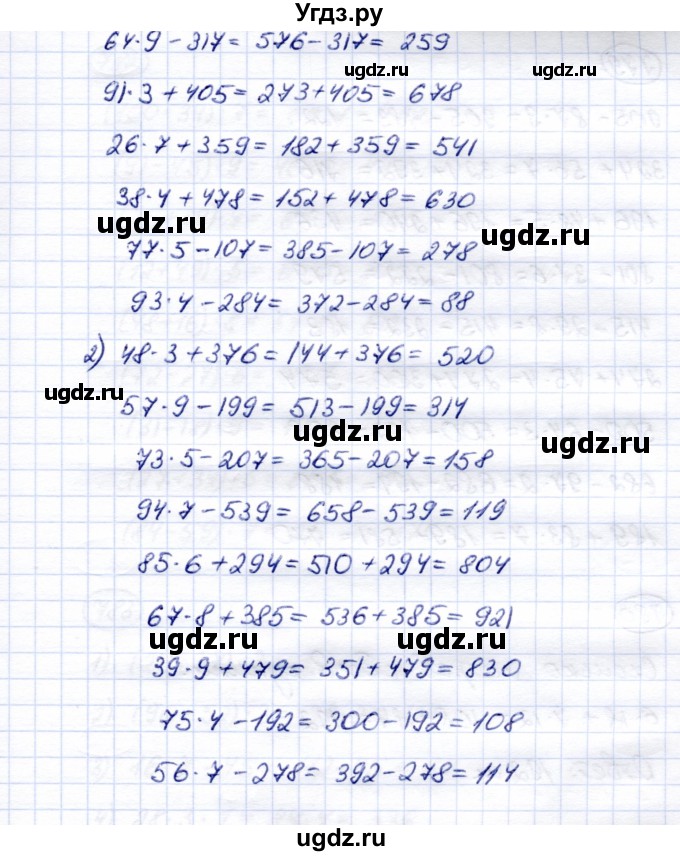 Угдз.ру
64·9-317=576-317=259
ugdz.ru
91·3+405=273+405=678
ugdz.ru
26·7+359=182+359=541
38·4+478=152+478=630
ugdz.ru
77·5-107=385-107=278
ugdz.ru
93·4-284=372-284=88
2) 48·3+376=144+376=520
ugdz.ru
57·9-199=513-199=314
ugdz.ru
ugdz.ru
73·5-207=365-207=158
94·7-539=658-539=119
ugdz.ru
85·6+294=510+294=804
67·8+385=536+385=921
ugdz.ru
ugdz.ru
39·9+479=351+479=830
75·4-192=300-192=108
56·7-278=392-278=114
ugdz.ru